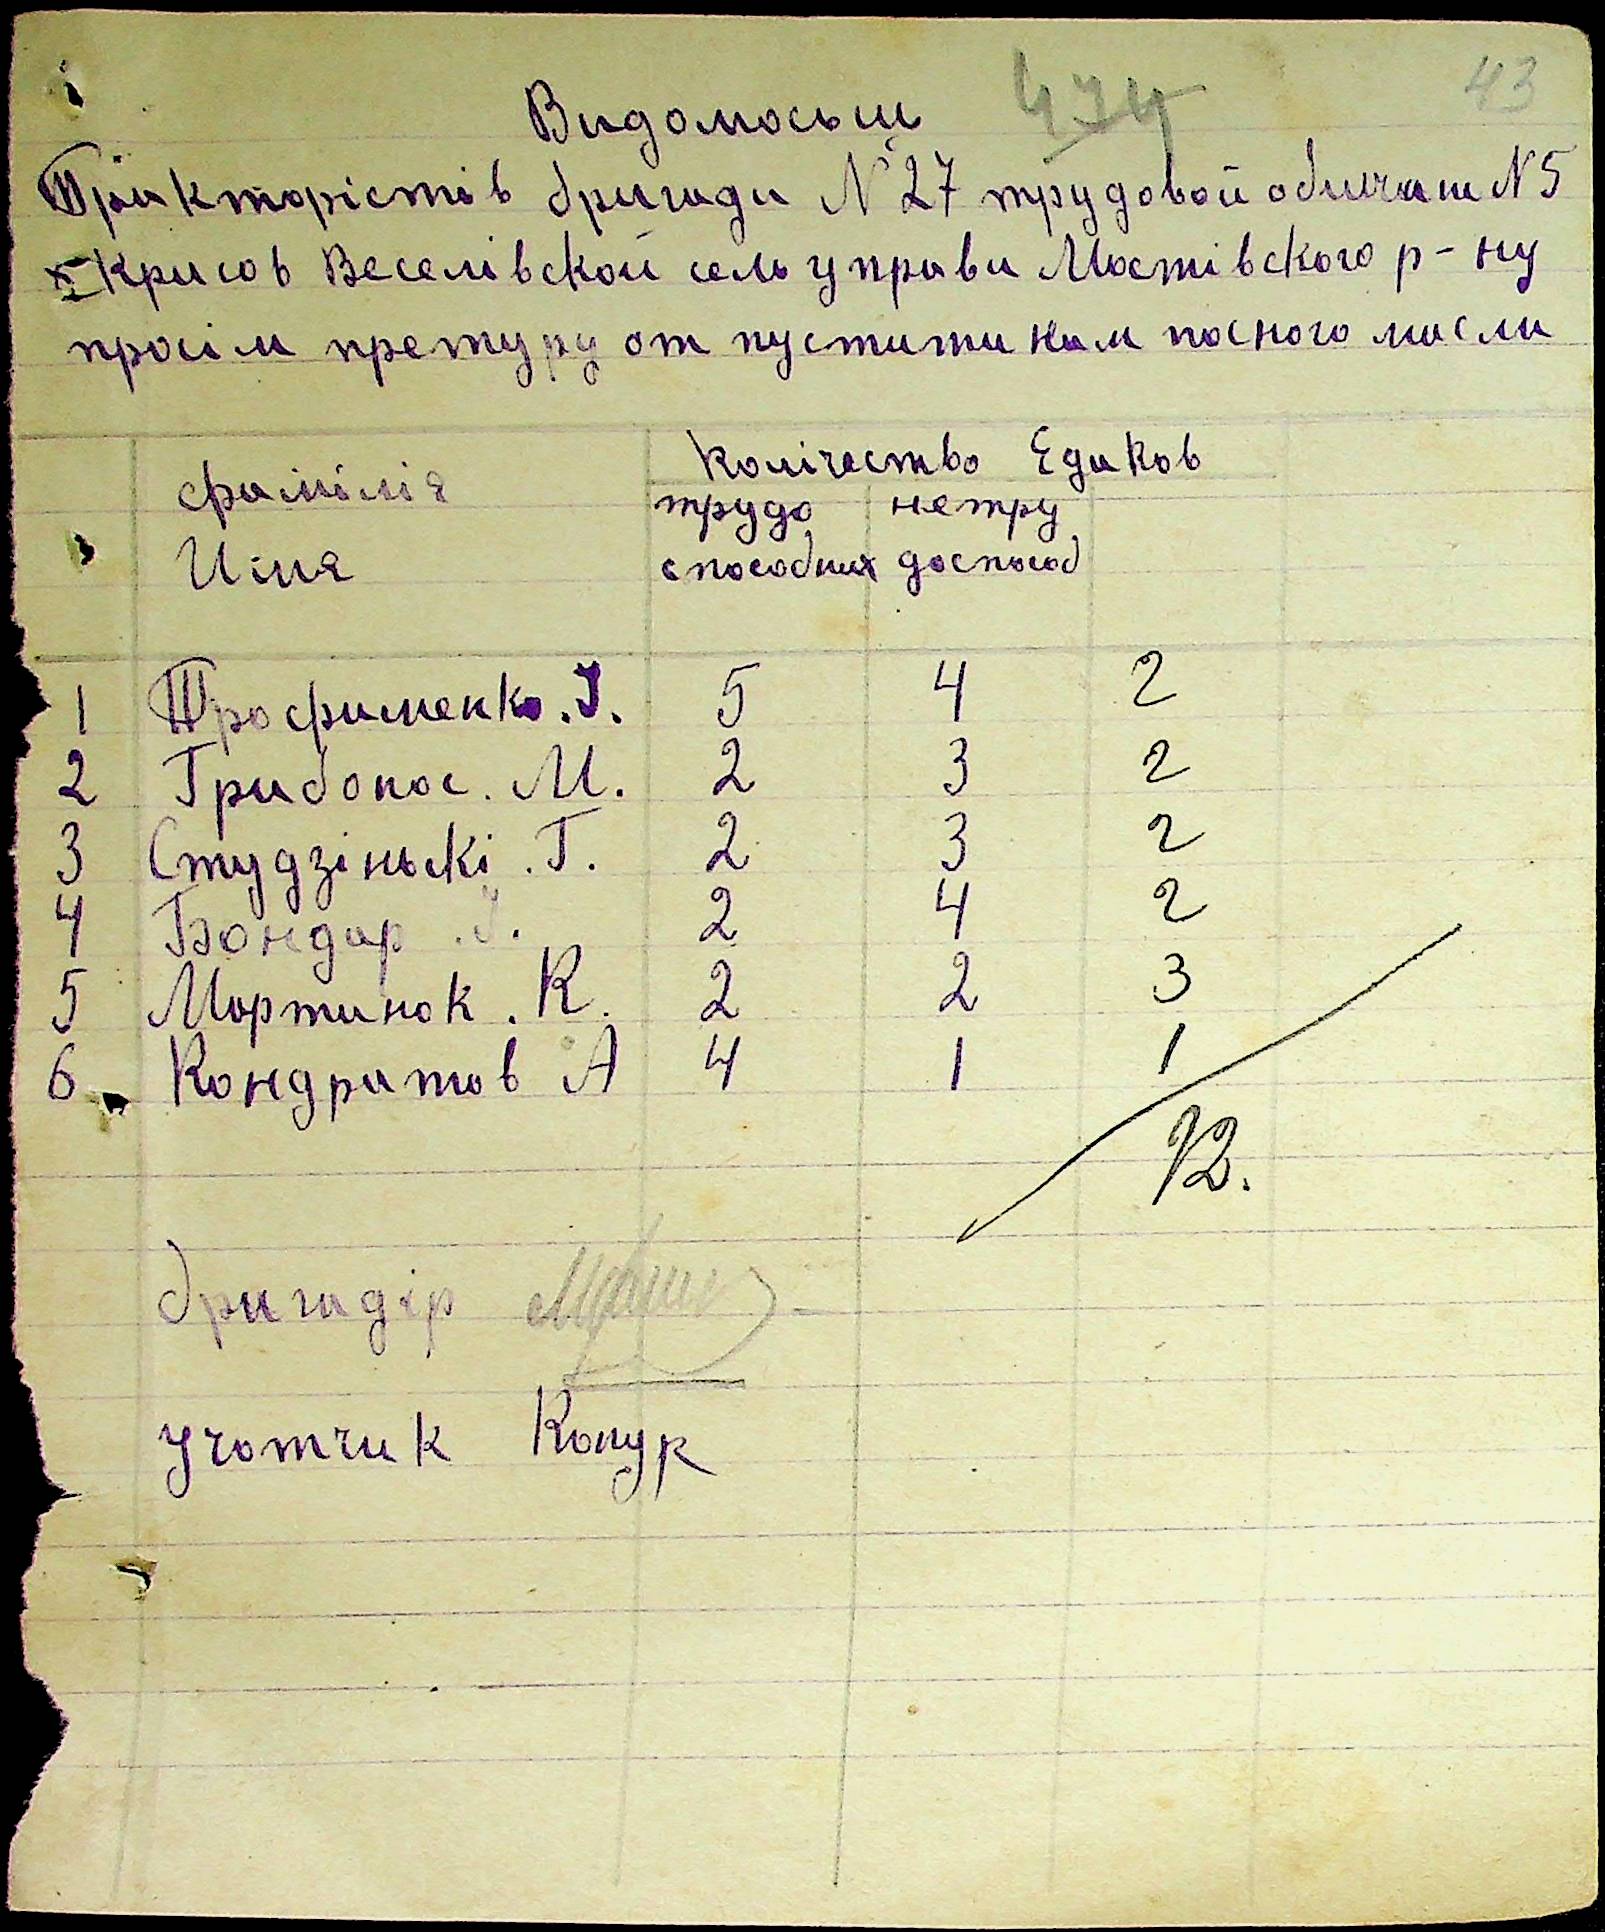 43
474
Видомосьть
Трікторістів бригади N 27 трудовой общчини N 5
Крисов Веселівской сель управи Мостівского р-ну
просім претуру от пустити нам посного масли
фамілія
Иімя
Колічество Едаков
трудо нетру
способних доспособ
1 Трофименко. І. 5 4 2
2 Грибонос. М. 2 3 2
3 Студзінські. Г. 2 3 2
4 Бондар. І. 2 4 2
5 Мартинюк. К. 2 2 3
6 Кондратов А 4 1 1
12.
бригадір
учотчик Копук